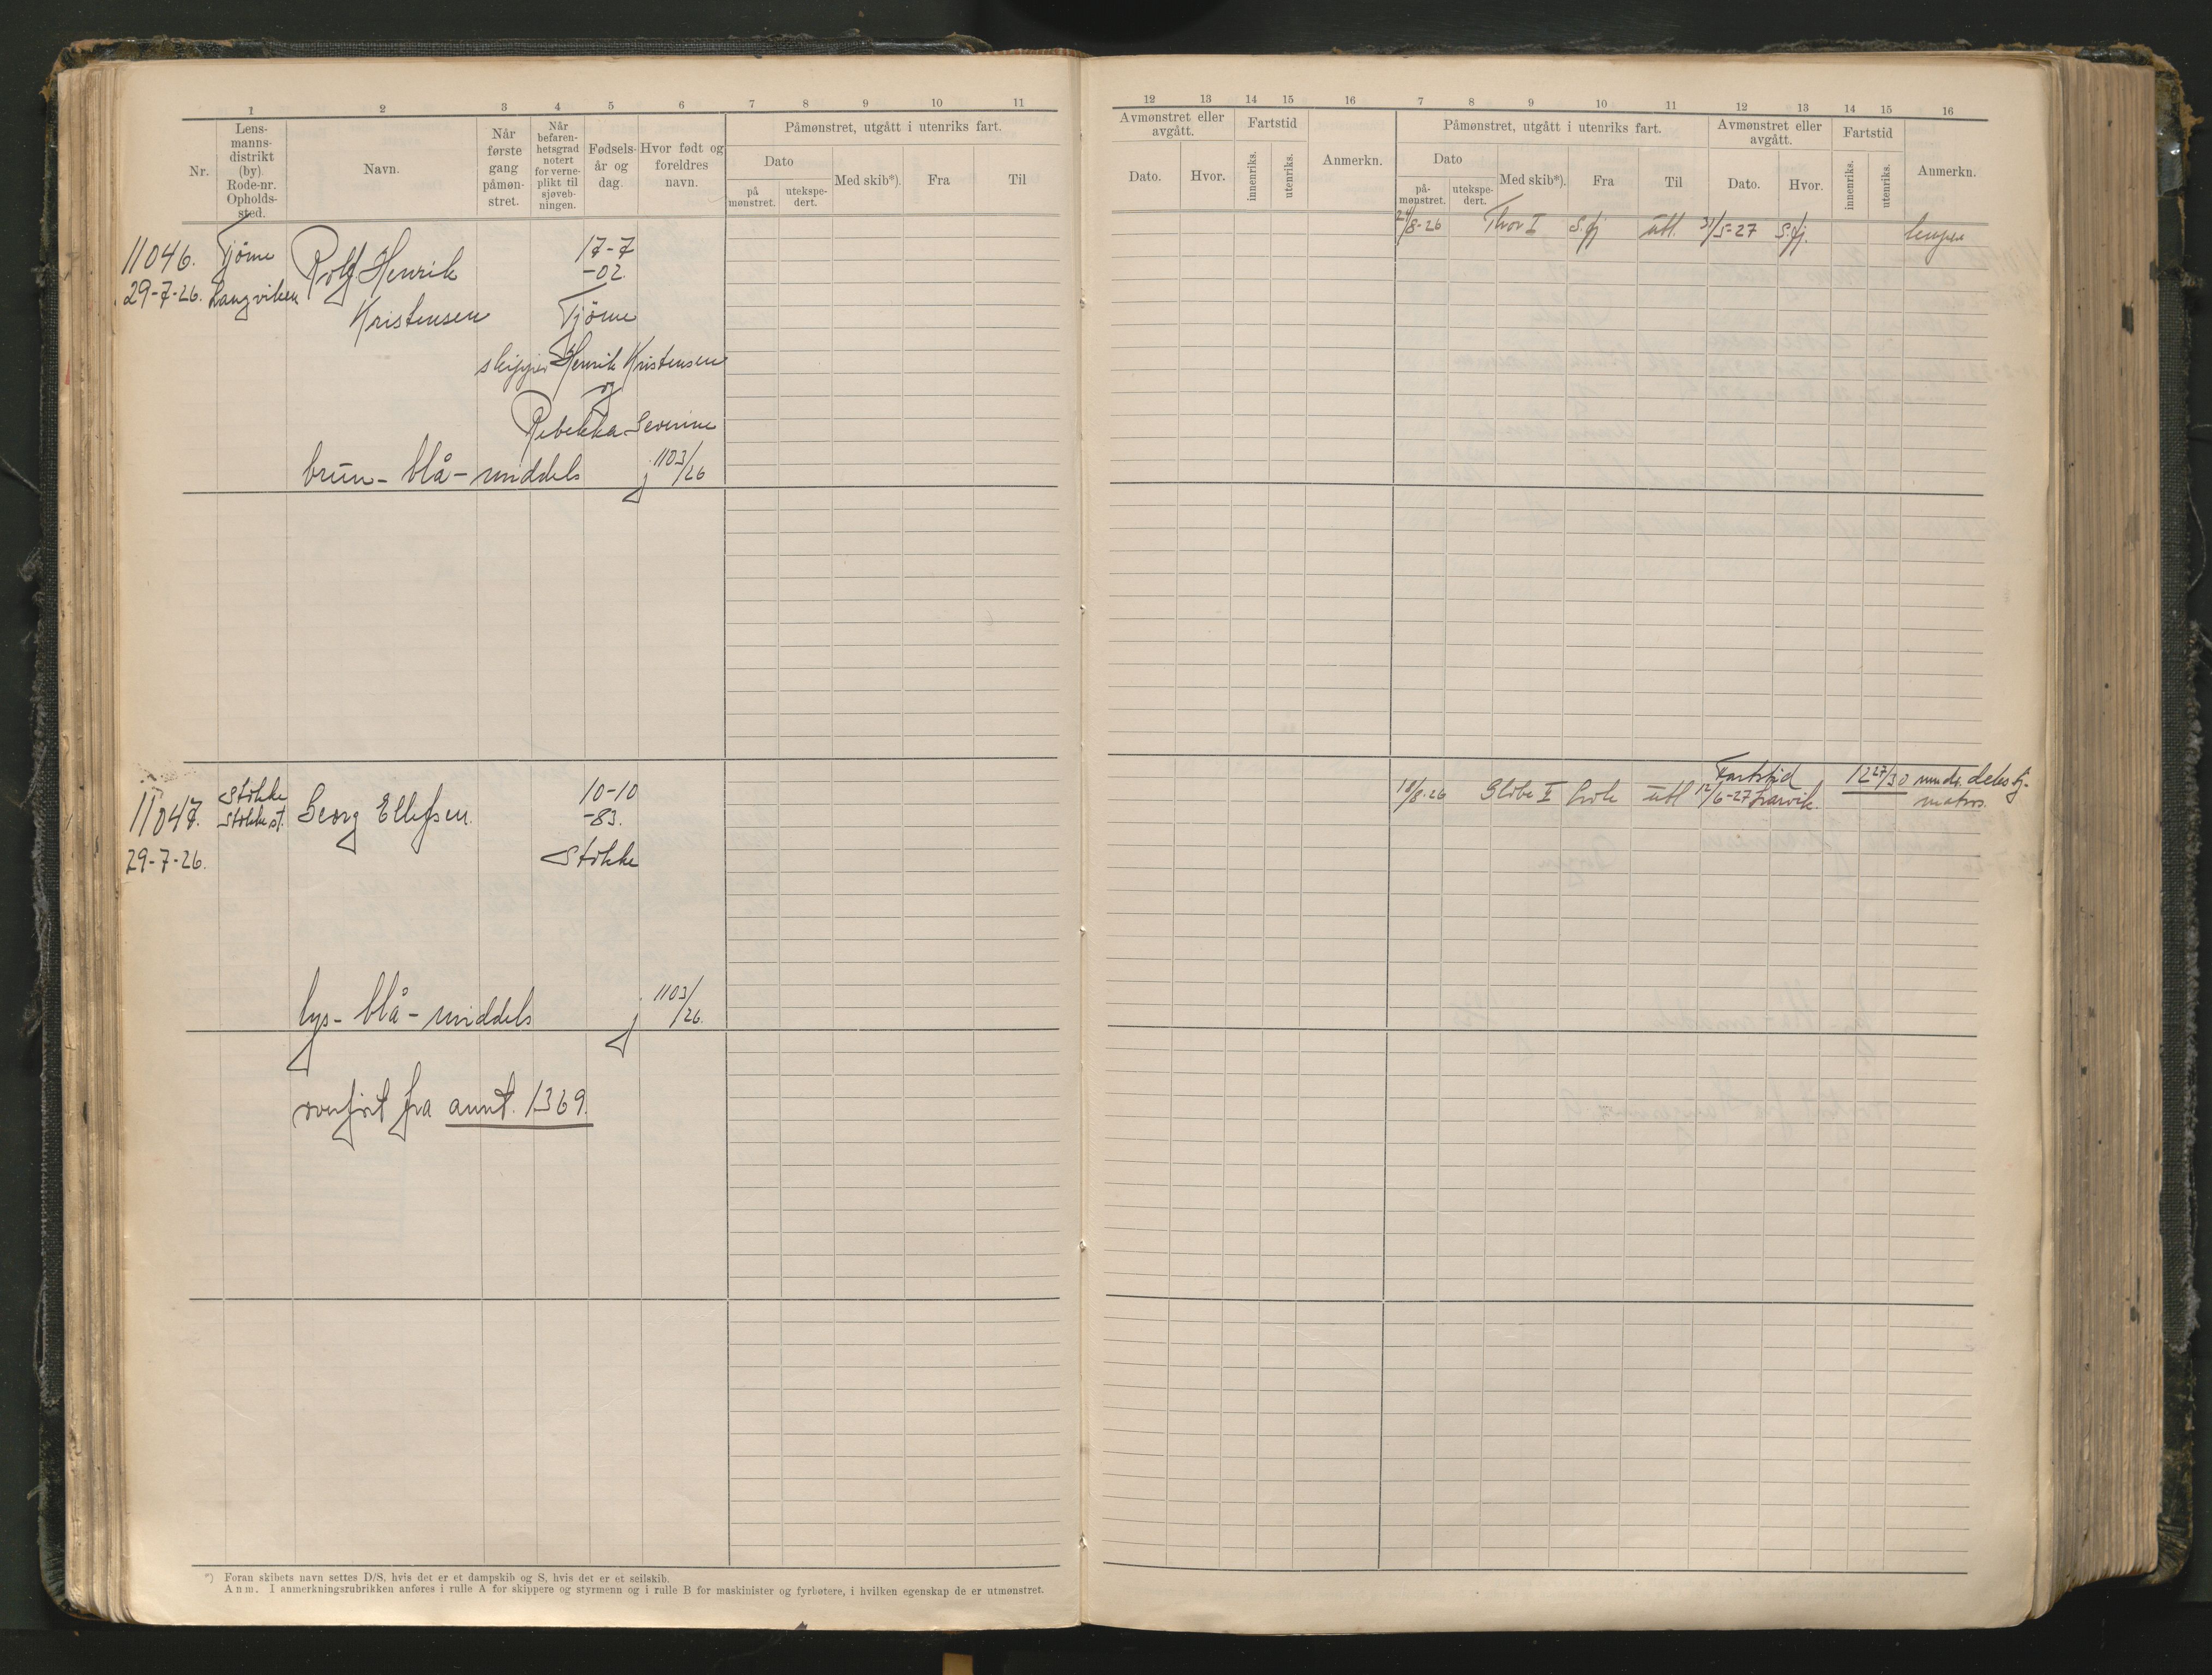 1 2 3 4 5 6 7 8 9 10 11
Nr.
Lens-
manns-
distrikt
(by).
Rode-nr.
Opholds-
sted.
Navn.
Når
første
gang
påmøn-
stret.
Når
befaren-
hetsgrad
notert
for verne-
plikt til
sjøveb-
ningen.
Fødsels-
år og
dag.
Hvor født og
foreldres
navn.
Påmønstret, utgått i utenriks fart.
Dato
på
mønstret.
utekspe-
dert.
Med skib*).
Fra
Til
11046. Tjöme Rolf Henrik 17-7
-02.
29-7-26. Langviken
Kristensen Tjöme
skipper Henrik Kristensen
og
Rebekka Severine
brun - blå - middels j 1103/26
11047. Stokke
Stokke st. Georg Ellefsen. 10-10
-83.
29-7-26. Stokke
lys - blå - middels j 1103/26.
overfört fra annt. 1369.
*) Foran skibets navn settes D/S, hvis det er et dampskib og S, hvis det er et seilskib.
Anm. I anmerkningsrubrikken anføres i rulle A for skippere og styrmenn og i rulle B for maskinister og fyrbøtere, i hvilken egenskap de er utmønstret.
12 13 14 15 16 7 8 9 10 11 12 13 14 15 16
Avmønstret eller
avgått.
Dato.
Hvor.
Fartstid
innenriks.
utenriks.
Anmerkn.
Påmønstret, utgått i utenriks fart.
Dato
på-
mønstret.
utekspe-
dert.
Med skib*).
Fra
Til
Avmønstret eller
avgått.
Dato.
Hvor.
Fartstid
innenriks.
utenriks.
Anmerkn.
24/8-26 Thor I S.fj utl. 31/5-27 S.fj. lemper
Fartstid 12 27/30 mndr. dekstj.
18/8-26 Globe II Larvik utl 12/6-27 Larvik. matros.